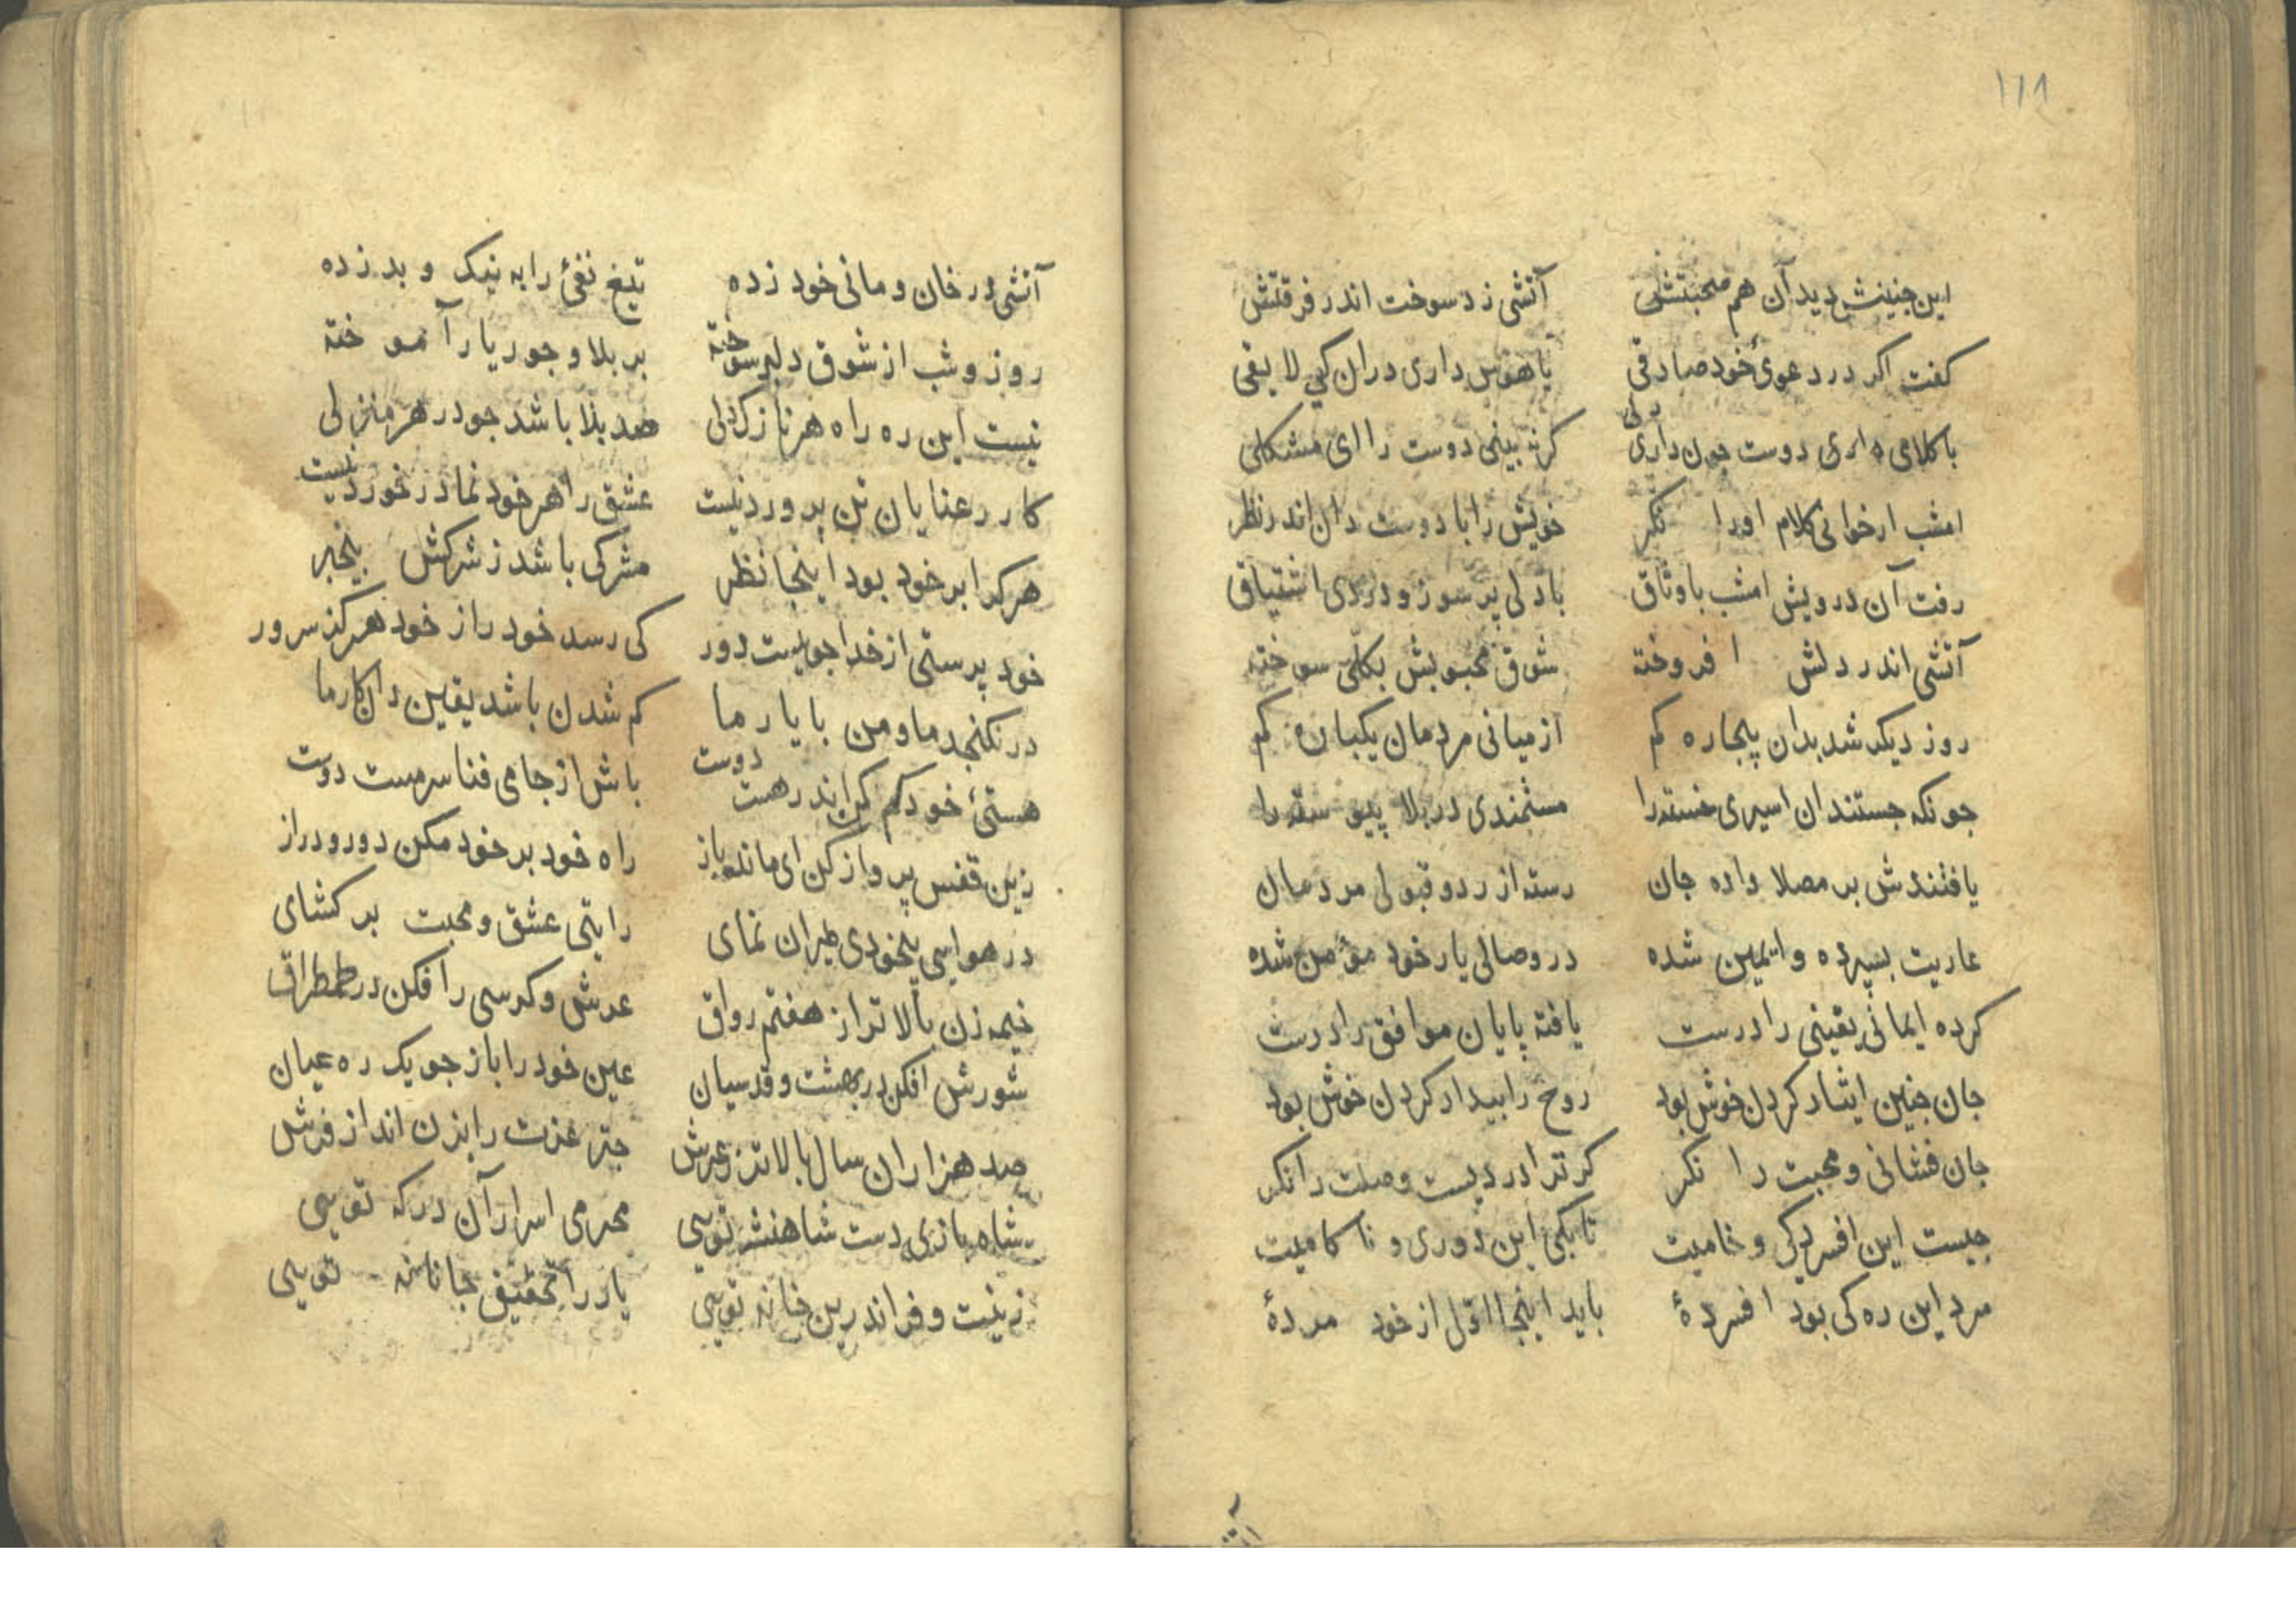 ۱۱۸
این جنینش دید آن هم صحبتش آتشی زد سوخت اندر فرقتش
کفت اکر در دعوئ خود صادقی یا هوس داری دران کی لایقی
با کلامی دوست جون داری دلی کر نه بینی دوست را ای مشکلی
امشب ار خوانی کلام اورا نکر خویش را با دوست دان اندر نظر
رفت آن درویش امشب با وثاق با دلی پر سوز و دردی اشتیاق
آتشی اندر دلش افروخته شوق محبوبش بکلی سوخته
روز دیکر شد بدان بیجاره کم از میانی مردمان یکباره کم
جونکه جستند ان اسیری خسته را مستمندی در بلا پیوسته را
یافتندش بر مصلا داده جان رسته از رد و قبولی مردمان
عاریت بسپرده و ایمین شده در وصالی یار خود مؤمن شده
کرده ایمانی یقینی را درست یافته پایان موافق را درست
جان جنین ایثار کردن خوش بود روح را بیدار کردن خوش بود
جان فشانی و محبت را نکر کر ترا دردیست وصلت را نکر
جیست این افسردکی و خامیت تا بکی این دوری و ناکامیت
مرد این ره کی بود افسردهٔ باید اینجا اوّل از خود مردهٔ
آتشی در خان و مانی خود زده تیغ نفئ را به نیک و بد زده
روز و شب از شوق دلبر سوخته بر بلا و جور یار آموخته
نیست این ره راه هر نازک دلی صد بلا باشد جو در هر منزلی
کار رعنایان تن پرورد نیست عشق را هر خود نما در خورد نیست
هرکرا بر خود بود اینجا نظر مشرکی باشد ز شرکش بیخبر
خود پرستی از خدا جویست دور کی رسد خود را ز خود هرکز سرور
در نکنجد ما و من با یار ما کم شدن باشد یقین دان کار ما
هستئ خود کم کن اندر هست دوست باش از جامی فنا سرمست دوست
زین قفس پرواز کن ای مانده باز راه خود بر خود مکن دور و دراز
در هوایی بیخودی طیران نمای رایتی عشق و محبت بر کشای
خیمه زن بالاتر از هفتم رواق عرش و کرسی را فکن در طمطراق
شورش افکن در بهشت و قدسیان عین خود را باز جو یک ره عیان
صد هزاران سال بالاتر ز عرش جتر عزت را بزن انداز فرش
شاه بازی دست شاهنشه تویی محرمی اسرار آن درکه تویی
زینت و فر اندرین خانه تویی یار را تحقیق جانانه تویی